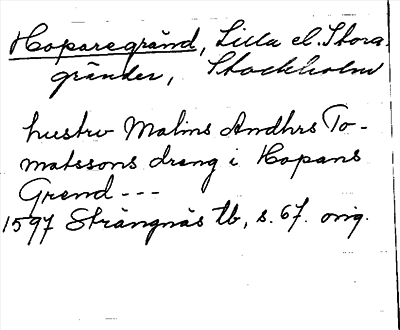 Hoparegränd, Lilla el. Stora
gränden, Stockholm
hustrv Malins Andhrs To-
matssons dreng i Hopans
Grend ---
1597 Strängnäs tb, s. 67. orig.